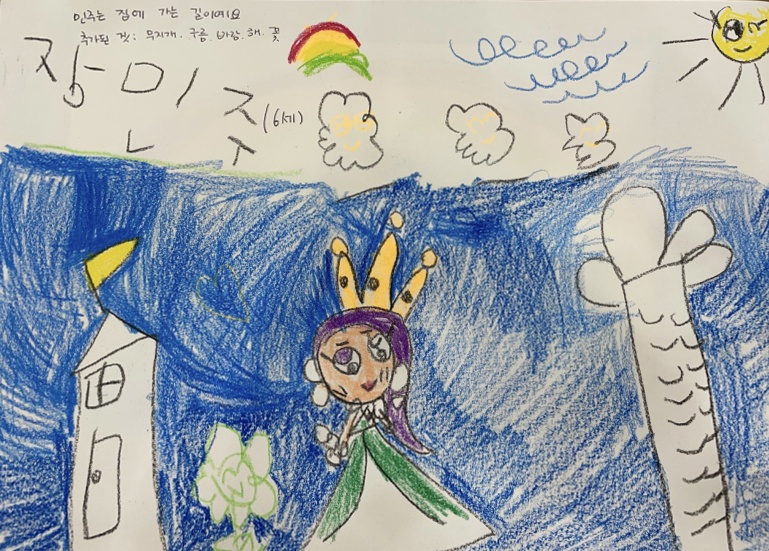 민주는 집에 가는 길이예요
추가된 것: 무지개, 구름, 바람, 해, 꽃
장민주 (6세)